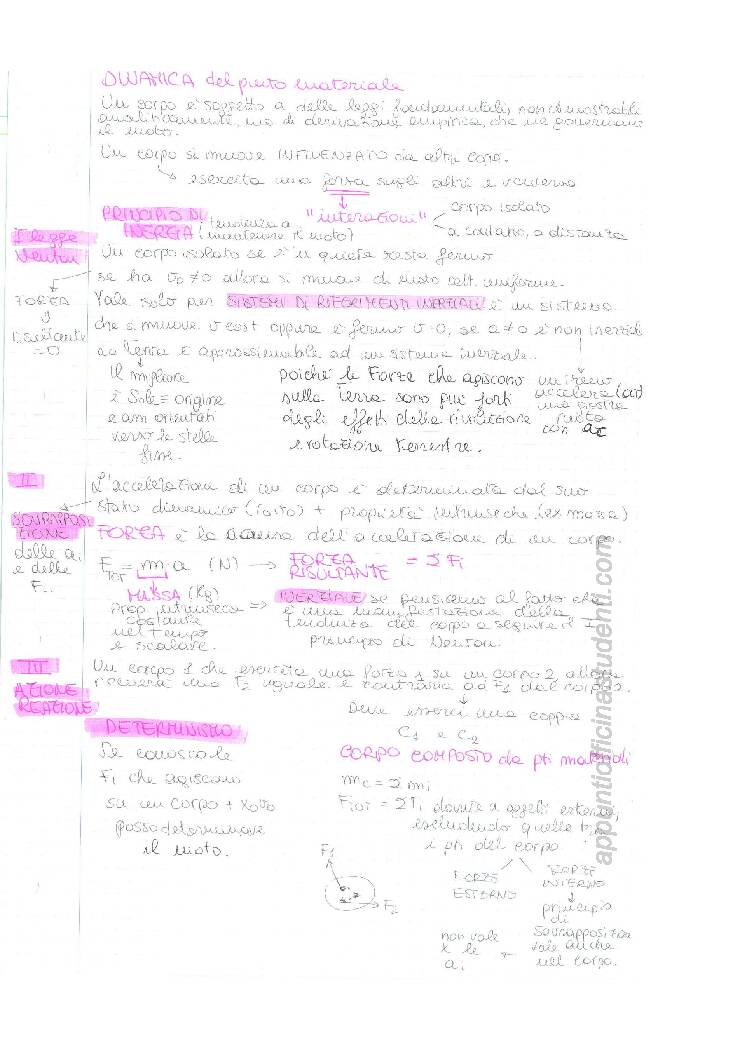 DINAMICA del punto materiale
Un corpo è soggetto a delle leggi fondamentali, non dimostrabili
analiticamente, ma di derivazione empirica, che ne governano
il moto.
Un corpo si muove INFLUENZATO da altri corpi.
esercita una forza sugli altri e viceversa
"interazioni"
corpo isolato
a contatto, a distanza
I legge
Newton
PRINCIPIO DI
INERZIA (tendenza a
mantenere il moto)
Un corpo isolato se è in quiete resta fermo
se ha v0 ≠ 0 allora si muove di moto rett. uniforme.
FORZA
risultante
= 0
Vale solo per SISTEMI DI RIFERIMENTI INERZIALI è un sistema
che si muove v cost oppure è fermo v=0, se a≠0 è non inerziale
La Terra è approssimabile ad un sistema inerziale.
Il migliore
è Sole = origine
e assi orientati
verso le stelle
fisse.
poiché le Forze che agiscono
sulla Terra sono più forti
degli effetti della rivoluzione
e rotazione terrestre.
accelera
una giostra
ruota
con ac
II
L'accelerazione di un corpo è determinata dal suo
stato dinamico (Ftot) + proprietà intrinseche (ex massa)
SOVRAPPOSI
ZIONE
delle ai
e delle
Fi.
FORZA è la causa dell'accelerazione di un corpo.
FTOT = m a (N) → FORZA
RISULTANTE = Σ Fi
MASSA (Kg)
prop. intrinseca ⇒
costante
nel tempo
e scalare.
INERZIALE se pensiamo al fatto che
è una manifestazione della
tendenza del corpo a seguire il I
principio di Newton.
III
AZIONE
REAZIONE
Un corpo 1 che esercita una forza 1 su un corpo 2, allora
riceverà una F2 uguale e contraria ad F1 dal corpo 2.
Deve esserci una coppia
C1 e C2
DETERMINISMO
Se conosco le
Fi che agiscono
su un corpo +
posso determinare
il moto.
CORPO COMPOSTO da pti materiali
mc = Σ mi
FTOT = Σ Fi dovute a oggetti esterni,
escludendo quelle tra
i pti del corpo.
F1
F2
FORZE
ESTERNE
FORZE
INTERNE
principio
di
Sovrapposizione
vale anche
nel corpo.
non vale
x le
ai
appuntiofficinastudenti.com